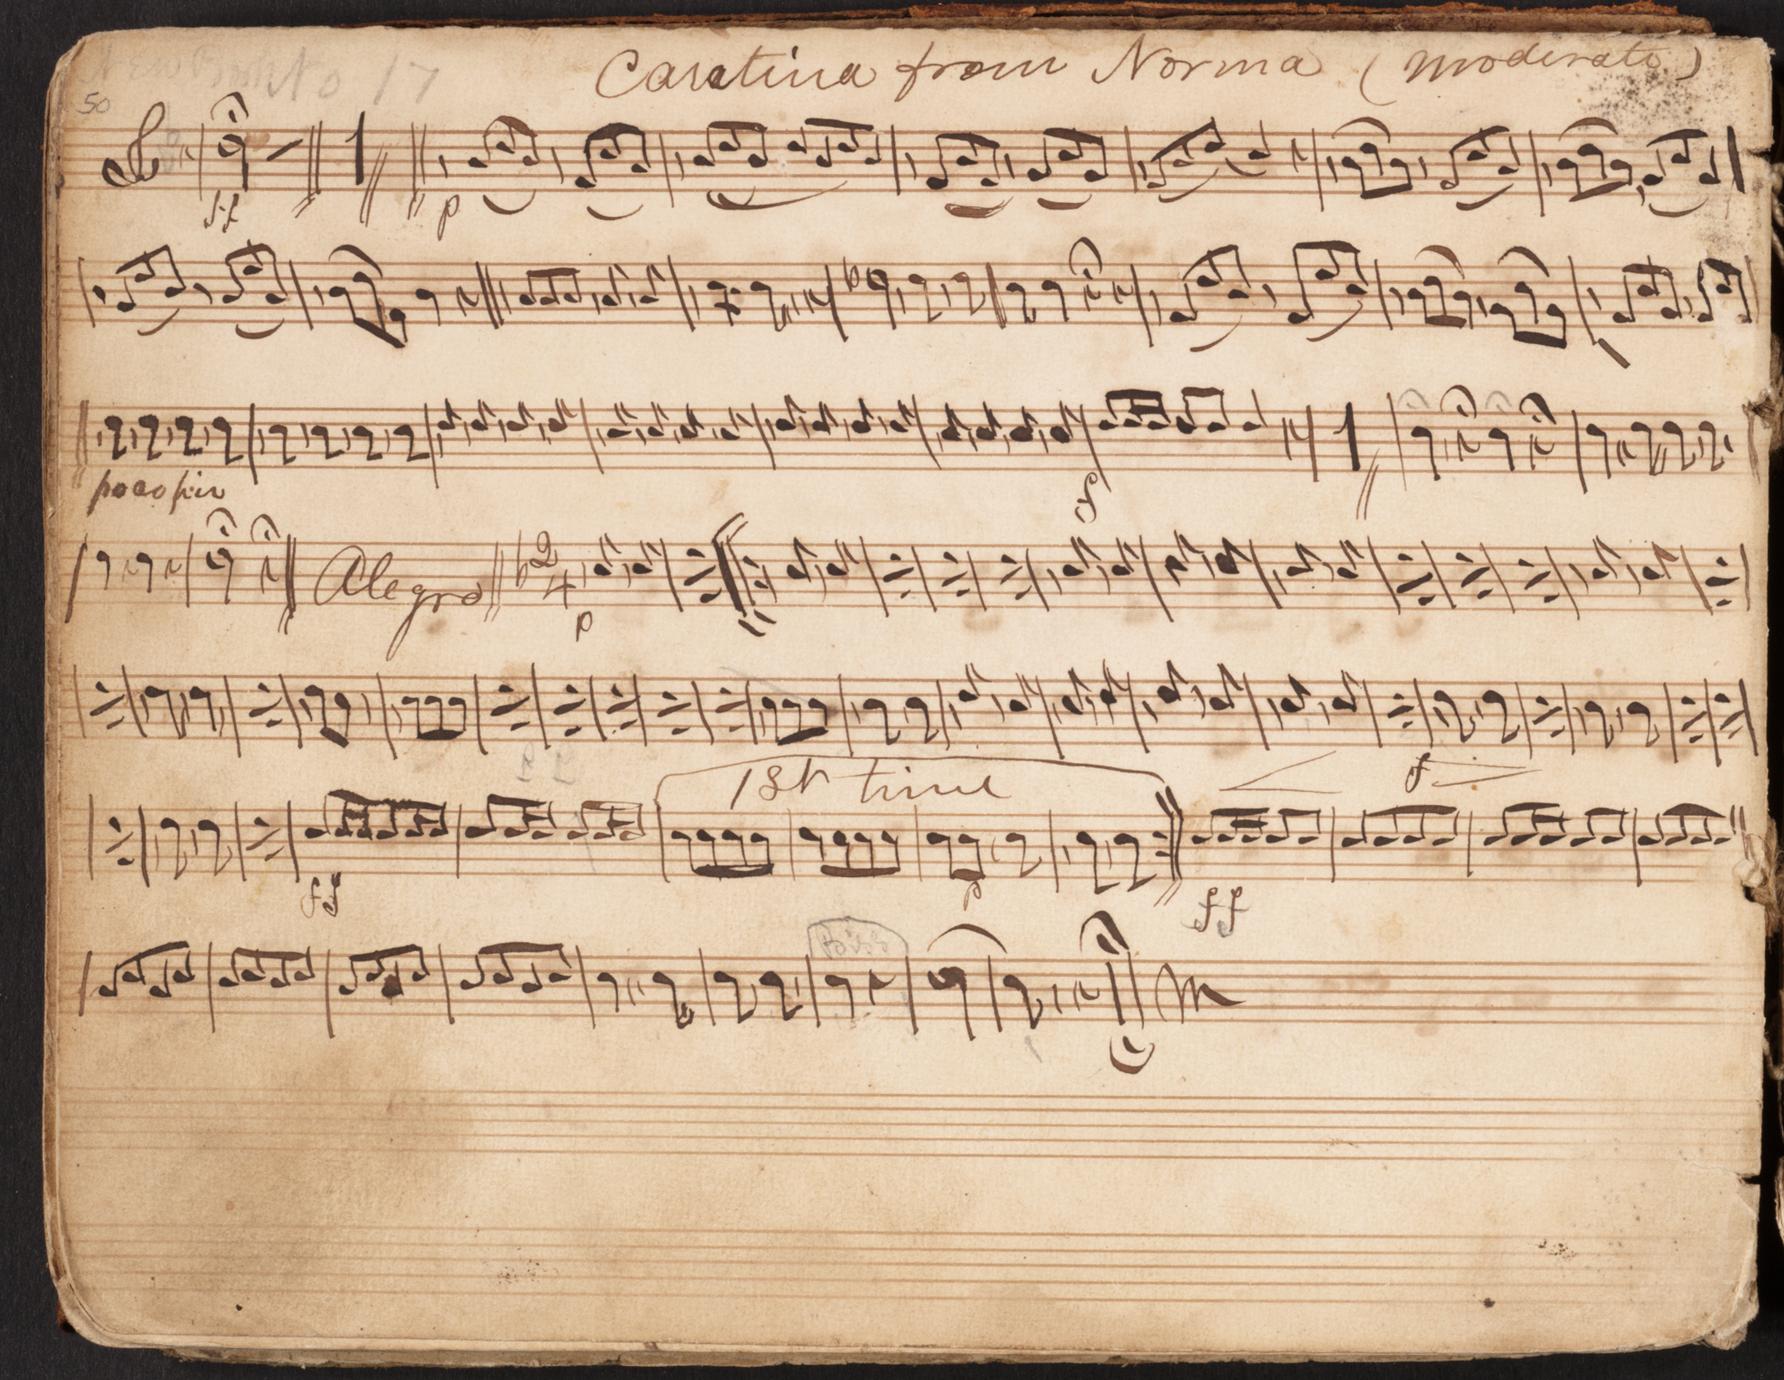 New Book No 17
50
Cavatina from Norma (Moderato)
ff
p
poco piu
f
Alegro
2
4
p
1st time
f
ff
p
ff
Biss